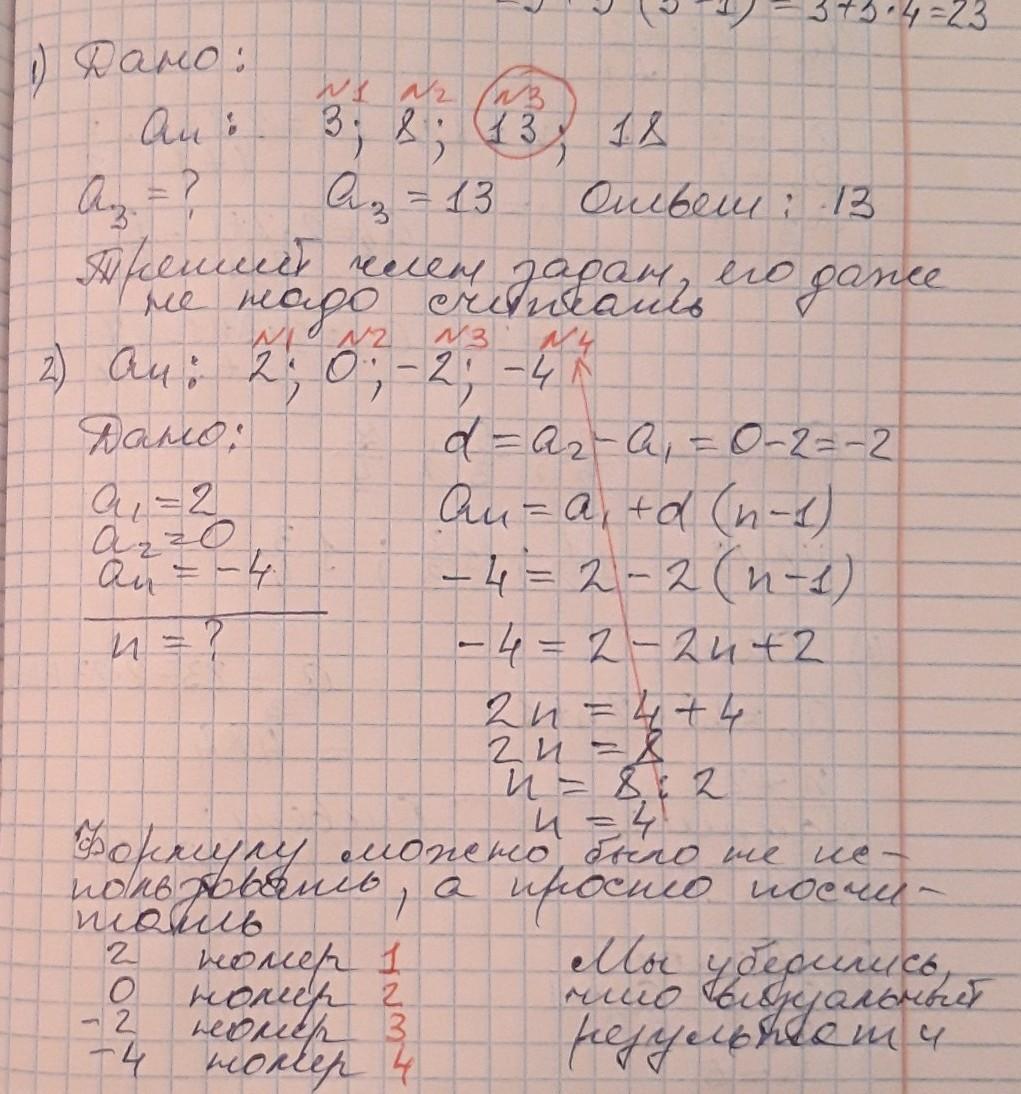 = 3 + 3 · 4 = 23
1) Дано:
№1 №2 №3
an: 3; 8; 13; 18
a3 = ? a3 = 13 Ответ: 13
Третий член задан, его даже
не надо считать
№1 №2 №3 №4
2) an: 2; 0; -2; -4
Дано: d = a2 - a1 = 0-2=-2
a1 = 2 an = a1 + d (n-1)
a2 = 0
an = -4 -4 = 2 - 2 (n-1)
n = ? -4 = 2 - 2n + 2
2n = 4 + 4
2n = 8
n = 8 : 2
n = 4
Формулу можно было не ис-
пользовать, а просто посчи-
тать
2 номер 1 Мы убедились,
0 номер 2 что визуальный
-2 номер 3 результат 4
-4 номер 4